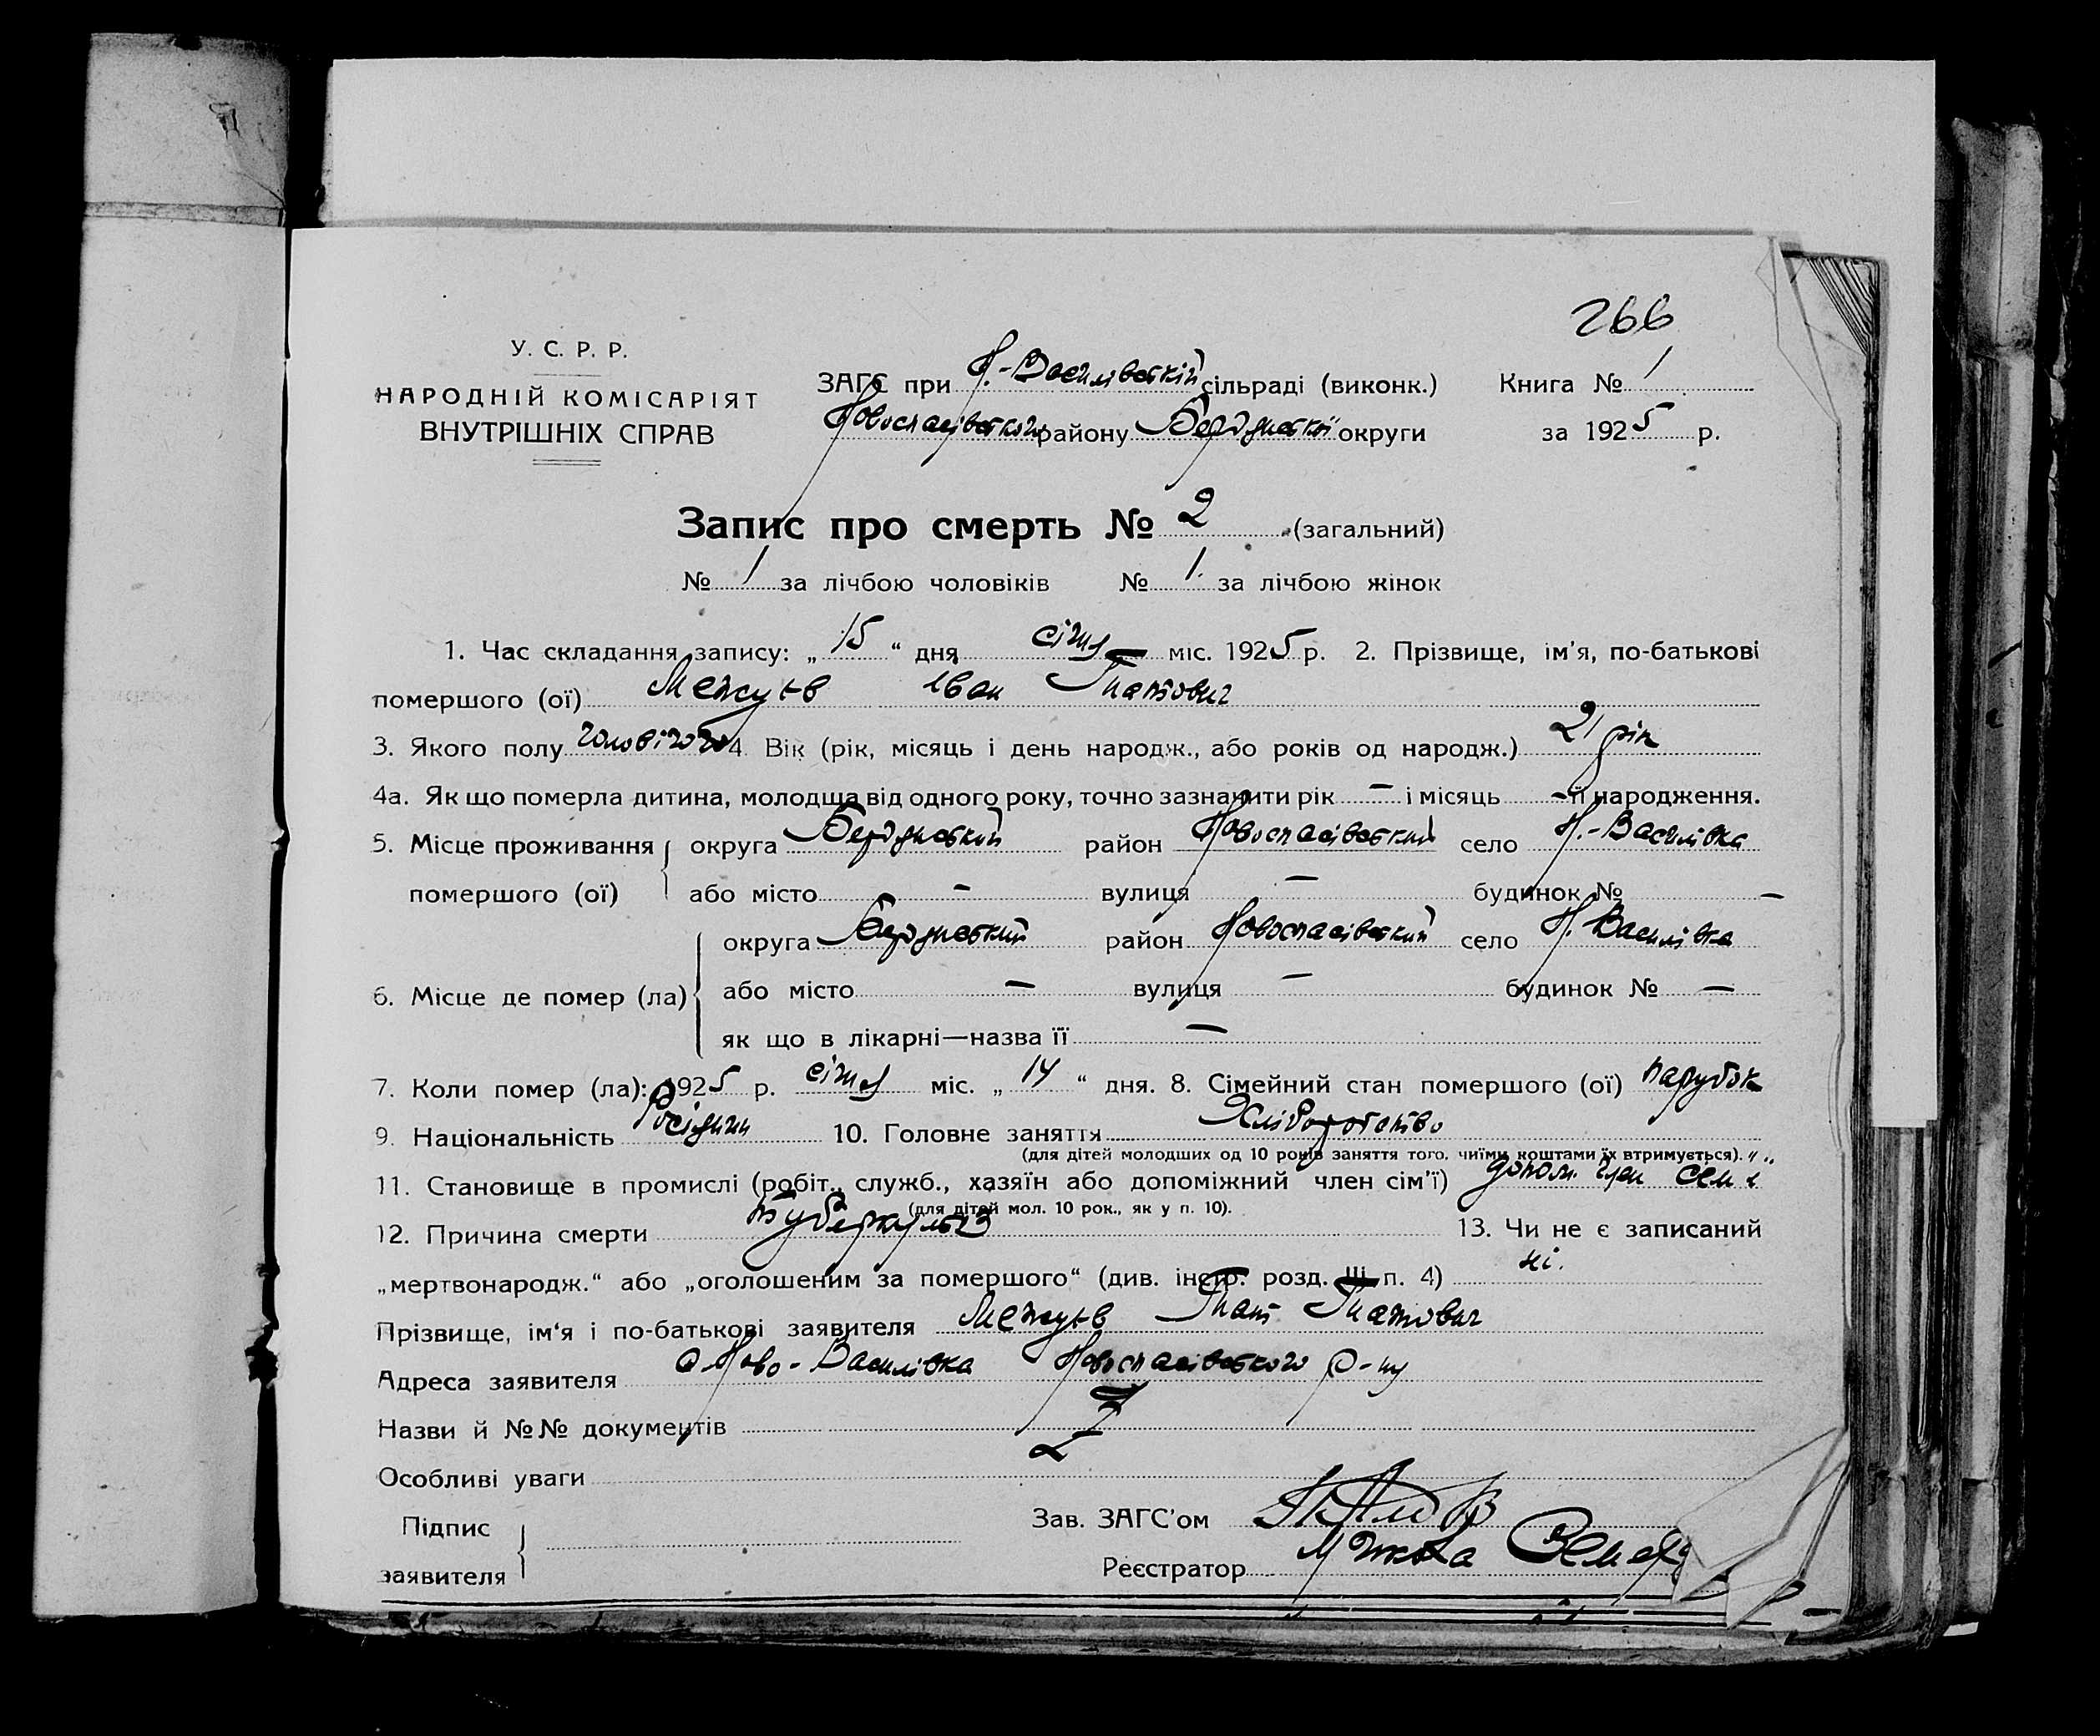 266
У. С. Р. Р.
НАРОДНІЙ КОМІСАРІЯТ
ВНУТРІШНІХ СПРАВ
ЗАГС при Н.-Василівській сільраді (виконк.)
Новоспасівського району Бердянської округи
Книга № 1
за 1925 р.
Запис про смерть № 2 (загальний)
№ 1 за лічбою чоловіків № 1. за лічбою жінок
1. Час складання запису: „15“ дня січня міс. 1925 р. 2. Прізвище, ім'я, по-батькові
помершого (ої) Межуєв Іван Гнатович
3. Якого полу чоловічого 4. Вік (рік, місяць і день народж., або років од народж.) 21 рік
4а. Як що померла дитина, молодща від одного року, точно зазначити рік — і місяць — її народження.
5. Місце проживання округа Бердянський район Новоспасівський село Н.-Василівка
помершого (ої) або місто — вулиця — будинок № —
округа Бердянський район Новоспасівський село Н. Василівка
6. Місце де помер (ла) або місто — вулиця — будинок № —
як що в лікарні—назва її —
7. Коли помер (ла): 1925 р. січня міс. „14“ дня. 8. Сімейний стан помершого (ої) парубок
9. Національність Росіянин 10. Головне заняття Хліборобство
(для дітей молодших од 10 років заняття того, чиїми коштами їх втримується).
11. Становище в промислі (робіт., служб., хазяїн або допоміжний член сім'ї) допом. член сем'ї
(для дітей мол. 10 рок., як у п. 10).
12. Причина смерти туберкульоз 13. Чи не є записаний
„мертвонародж.“ або „оголошеним за помершого“ (див. інстр. розд. III п. 4) ні.
Прізвище, ім'я і по-батькові заявителя Межуєв Гнат Гнатович
Адреса заявителя с. Ново-Василівка Новоспасівського р-ну
Назви й №№ документів
Особливі уваги
Підпис
заявителя
Зав. ЗАГС'ом
Реєстратор